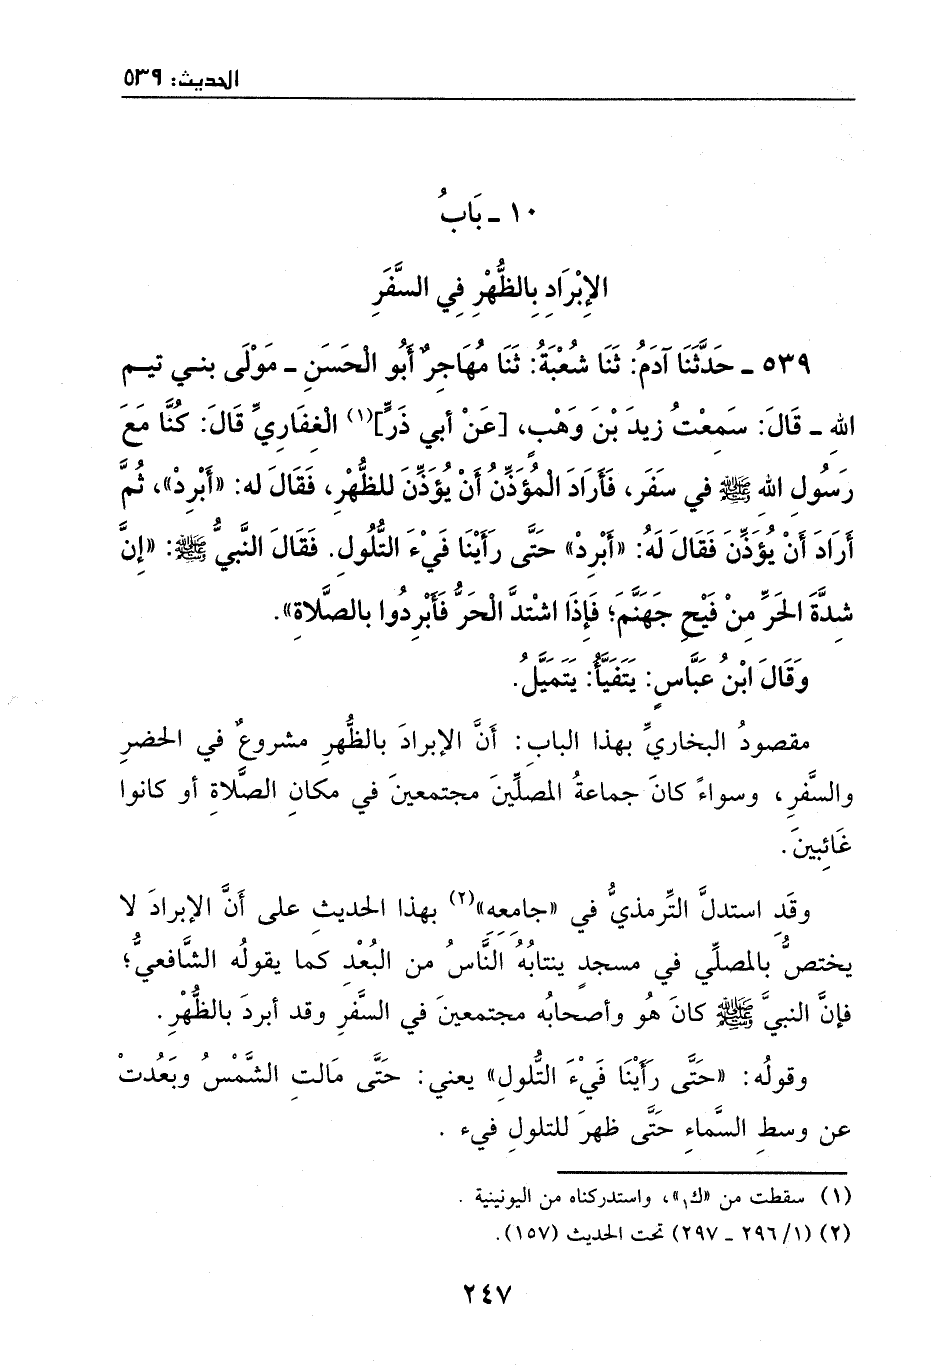 الحديث: ٥٣٩
١٠ ـ بَابُ
الإبْرَادِ بِالظُّهْرِ فِي السَّفَرِ
٥٣٩ ـ حَدَّثَنَا آدَمُ: ثَنَا شُعْبَةُ: ثَنَا مُهَاجِرٌ أَبُو الْحَسَنِ ـ مَوْلَى بني تيم
الله ـ قَالَ: سَمِعْتُ زيدَ بْنَ وَهْبٍ، [عَنْ أبي ذَرٍّ](١) الْغِفَاريِّ قَالَ: كُنَّا مَعَ
رَسُولِ اللهِ ﷺ في سفَر، فَأَرَادَ الْمُؤَذِّنُ أَنْ يُؤَذِّنَ للظُّهْرِ، فَقَالَ له: «أَبْرِدْ»، ثُمَّ
أَرَادَ أَنْ يُؤَذِّنَ فَقَالَ لَهُ: «أَبْرِدْ» حَتَّى رَأَيْنَا فَيْءَ التُّلُولِ. فَقَالَ النَّبيُّ ﷺ: «إنَّ
شِدَّةَ الحَرِّ مِنْ فَيْحِ جَهَنَّمَ؛ فَإِذَا اشْتدَّ الْحَرُّ فَأَبْرِدُوا بالصَّلَاةِ».
وَقَالَ ابْنُ عَبَّاسٍ: يَتَفَيَّأُ: يَتَمَيَّلُ.
مقصودُ البخاريِّ بهذا البابِ: أنَّ الإبرادَ بالظُّهرِ مشروعٌ في الحضرِ
والسَّفرِ، وسواءً كانَ جماعةُ المصلِّينَ مجتمعينَ في مكانِ الصَّلاةِ أو كانوا
غَائِبينَ.
وقَدِ استدلَّ التِّرمذيُّ في «جامعِه»(٢) بهذا الحديثِ على أنَّ الإبرادَ لا
يختصُّ بالمصلِّي في مسجدٍ ينتابُهُ النَّاسُ من البُعْدِ كما يقولُه الشَّافعيُّ؛
فإنَّ النبيَّ ﷺ كانَ هُو وأصحابُه مجتمعينَ في السَّفرِ وقد أبردَ بالظُّهْرِ.
وقولُه: «حَتَّى رَأَيْنَا فَيْءَ التُّلولِ» يعني: حَتَّى مَالتِ الشَّمْسُ وبَعُدتْ
عن وسطِ السَّماءِ حَتَّى ظهرَ للتلولِ فيء .
(١) سقطت من «ك١»، واستدركناه من اليونينية .
(٢) (١/ ٢٩٦ ـ ٢٩٧) تحت الحديث (١٥٧).
٢٤٧